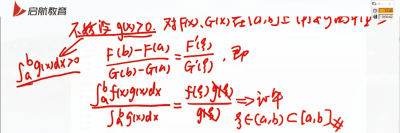 启航教育
不妨设 g(x)>0. 对F(x), G(x)在[a,b]上
∫_a^b g(x)dx>0
\frac{F(b)-F(a)}{G(b)-G(a)} = \frac{F'(ξ)}{G'(ξ)}, 即
\frac{∫_a^b f(x)g(x)dx}{∫_a^b g(x)dx} = \frac{f(ξ)g(ξ)}{g(ξ)} ⇒ 证毕
ξ∈(a,b)⊂[a,b] #